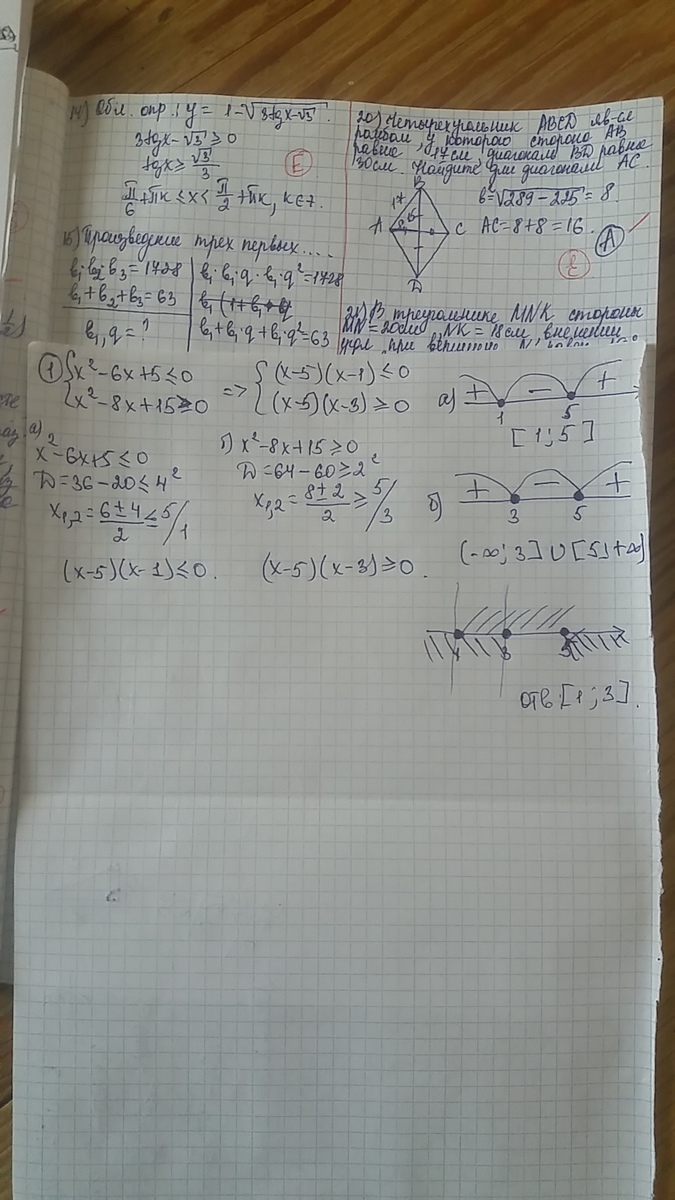 14) Обл. опр.: y = 1-√3tgx-√3.
3tgx-√3 ≥ 0
tgx ≥ √3/3
E
π/6+πk ≤ x < π/2+πk, k∈Z.
15) Произведение трех первых....
b₁·b₂·b₃=1728
b₁+b₂+b₃=63
b₁, q = ?
b₁·b₁q·b₁·q²=1728
b₁+b₁·q+b₁·q²=63
20) Четырехугольник ABCD яв-ся
ромбом, у которого сторона AB
равна 17см, диагональ BD равна
30см. Найдите дли диагонали AC.
B
17
A
C
D
b=√289-225 = 8.
AC=8+8=16.
A
E
21) В треугольнике MNK стороны
MN=20см, NK=18см, внешний
угол при вершине N
1 {x²-6x+5≤0
x²-8x+15≥0
=> {(x-5)(x-1)≤0
(x-5)(x-3)≥0
a) + - +
1 5
[1;5]
a)
x²-6x+5≤0
D=36-20≤4²
x₁,₂=6±4/2≤5/1
(x-5)(x-1)≤0.
б) x²-8x+15≥0
D=64-60≥2²
x₁,₂=8±2/2≥5/3
(x-5)(x-3)≥0.
б) + - +
3 5
(-∞;3]∪[5;+∞)
1 3 5
отв:[1;3].